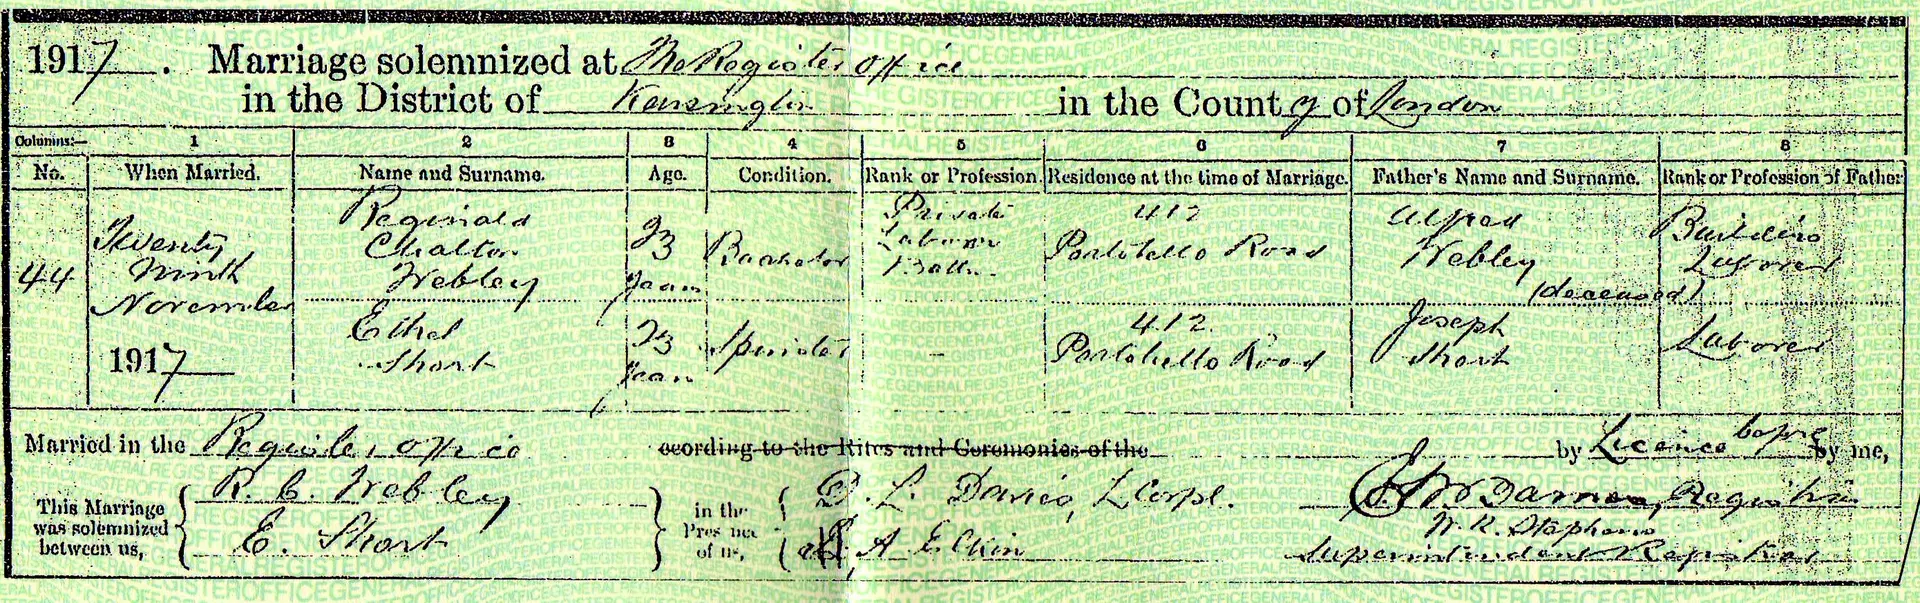 1917. Marriage solemnized at The Register Office
in the District of Kensington in the County of London
Columns:— 1 2 3 4 5 6 7 8
No. When Married. Name and Surname. Age. Condition. Rank or Profession. Residence at the time of Marriage. Father's Name and Surname. Rank or Profession of Father
44 Twenty Ninth November 1917
Reginald
Webley
23 years
Bachelor
Private
Labour
Battn.
412
Portobello Road
Alfred
Webley
(deceased)
Builders
Laborer
Ethel
Short
23 years
Spinster
—
412
Portobello Road
Joseph
Short
Laborer
Married in the Register Office ccording to the Rites and Ceremonies of the by Licence before by me,
This Marriage
was solemnized
between us,
R. C. Webley
E. Short
in the
Pres nce
of us,
D. L. Davies, L Corpl.
A Elkin
Registrar
W. R. Stephens
Superintendent Registrar